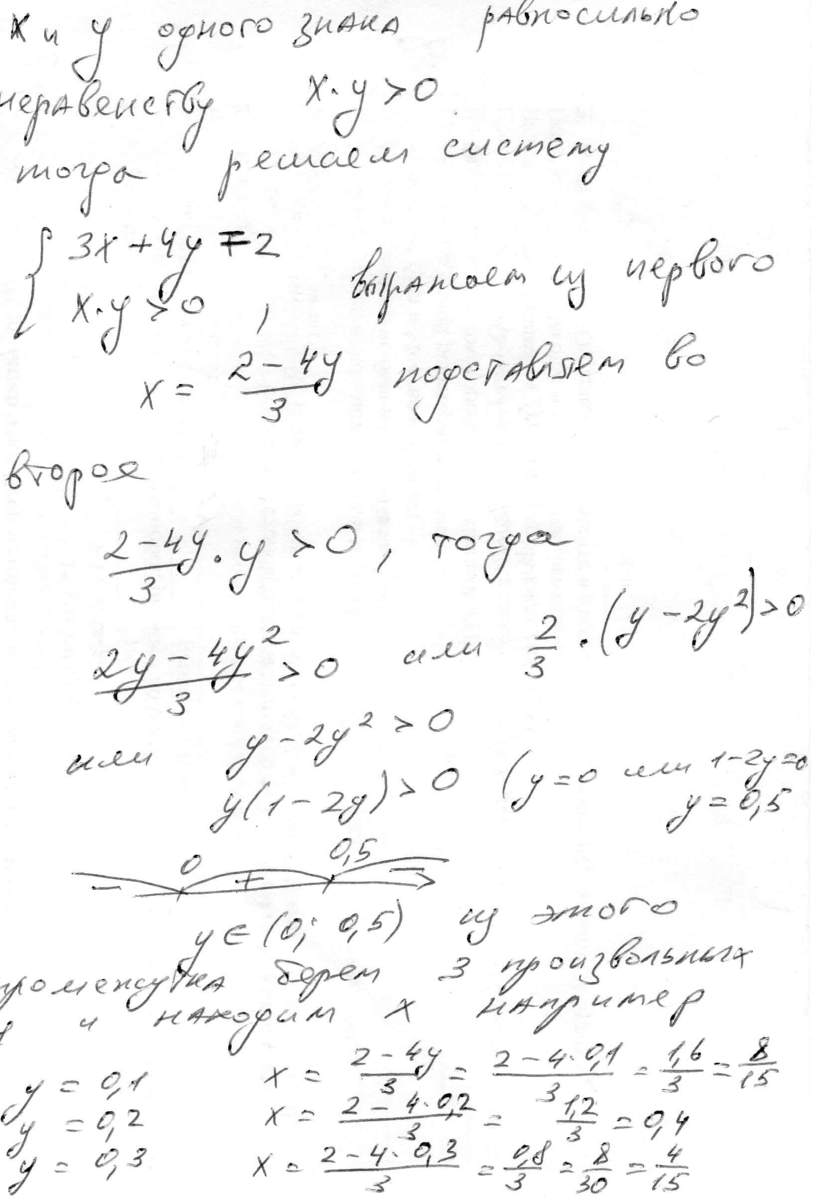 х и y одного знака равносильно
неравенству x·y>0
тогда решаем систему
{ 3x+4y=2
x·y>0 , выражаем из первого
x = (2-4y)/3 подставляем во
второе
(2-4y)/3 · y > 0, тогда
(2y-4y²)/3 > 0 или 2/3 · (y-2y²)>0
или y-2y² > 0
y(1-2y) > 0 (y=0 или 1-2y=0
y=0,5
0 0,5
- + -
y∈(0; 0,5) из этого
промежутка берем 3 произвольных
и находим x например
y = 0,1 x = (2-4y)/3 = (2-4·0,1)/3 = 1,6/3 = 8/15
y = 0,2 x = (2-4·0,2)/3 = 1,2/3 = 0,4
y = 0,3 x = (2-4·0,3)/3 = 0,8/3 = 8/30 = 4/15